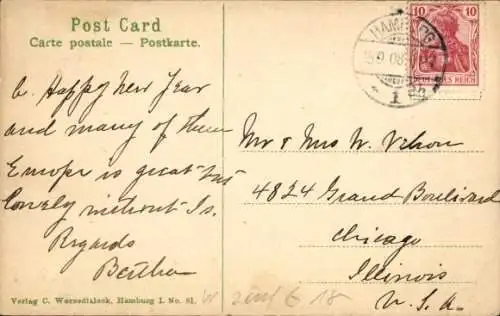 Post Card
Carte postale — Postkarte.
10 10
HAMBURG
9.08
1
DEUTSCHES REICH
A Happy New Year
and many of them
Europe is great but
lonely without Is.
Regards
Bertha
Mr & Mrs W.
4824 Grand Boulevard
Chicago
Illinois
U. S. A.
Verlag C. Worzedialeck, Hamburg I. No. 81.
18